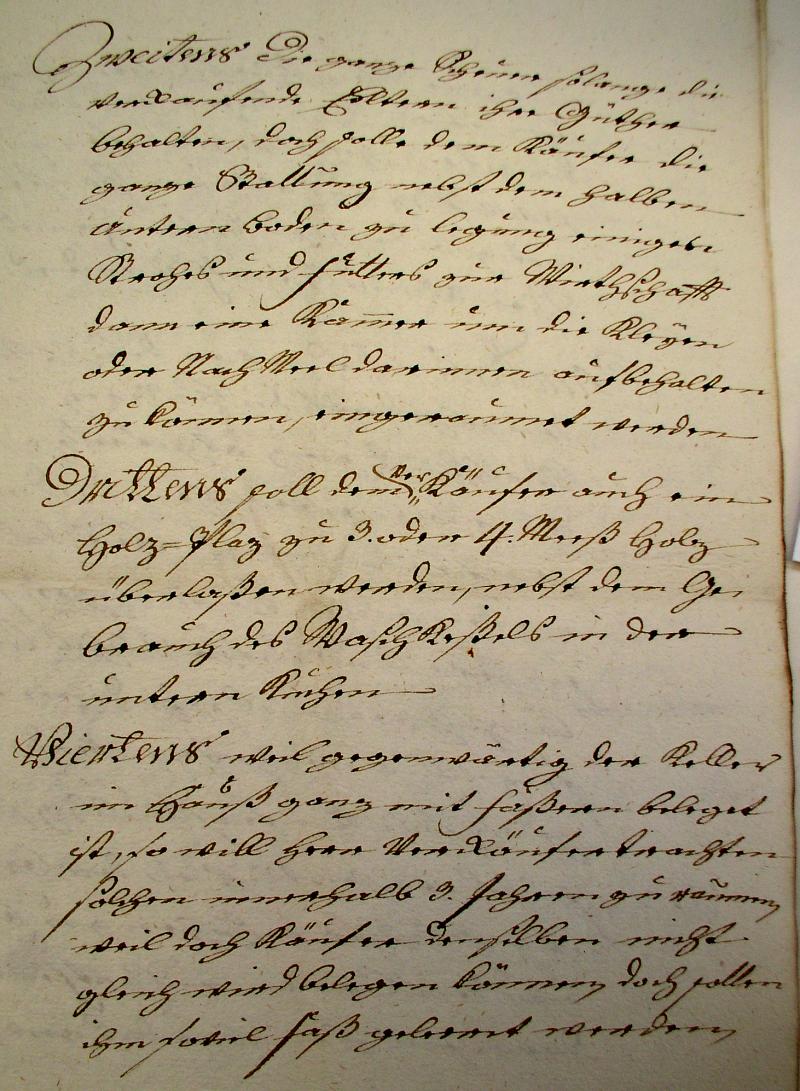 Zweitens Die ganze Scheuer solange die
verkaufende Eltern ihre Güther
behalten, doch solle dem Käufer die
ganze Stallung nebst dem halben
untern boden zu legung einiges
Strohes und futters zur Wirthschafft
dann eine Kammer um die Kleyen
oder Nach Meel darinnen aufbehalten
zu können, eingeraumet werden
Drittens soll dem Ver Käufer auch ein
Holz=Plaz zu 3. oder 4. Meeß Holz
überlaßen werden, nebst dem Ge,
brauch des WaschKeßels in der
untern Kuchen
Viertens weil gegenwärtig der Keller
im Hauß gang mit fäßern beleget
ist, so will Herr Verkäufer trachten
solchen innerhalb 3. Jahren zu raumen,
weil doch Käufer denselben nicht
gleich wird belegen können, doch sollen
ihm soviel faß geleert werden,